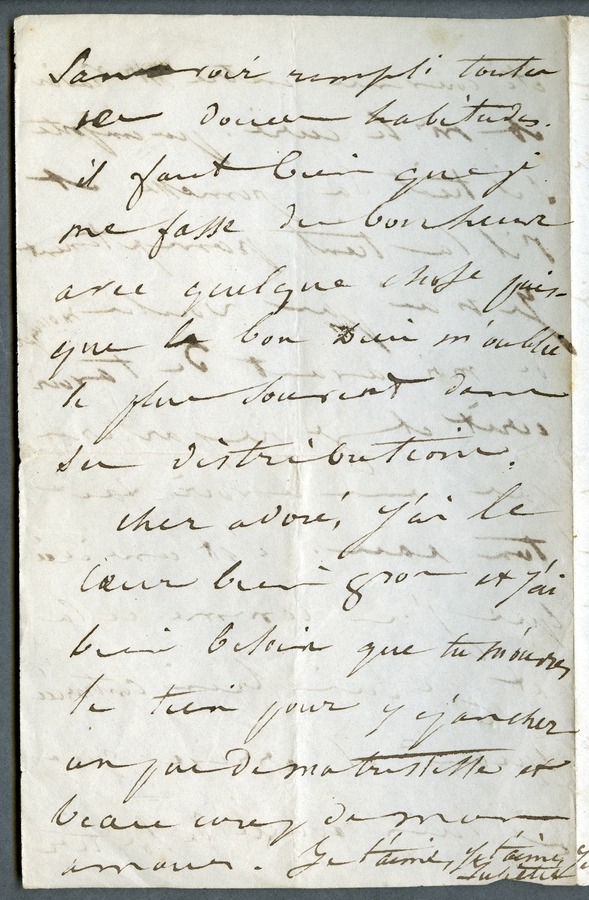 sans avoir rempli toutes
ses douces habitudes.
il faut bien que j'
me fasse du bonheur
avec quelque chose puis-
que le bon Dieu m'oublie
le plus souvent dans
ses distributions.
cher adoré, j'ai le
cœur bien gros et j'ai
bien besoin que tu m'ouvres
le tien pour y épancher
un peu de ma tristesse et
beaucoup de mon
amour. Je t'aime, je t'aime
Juliette